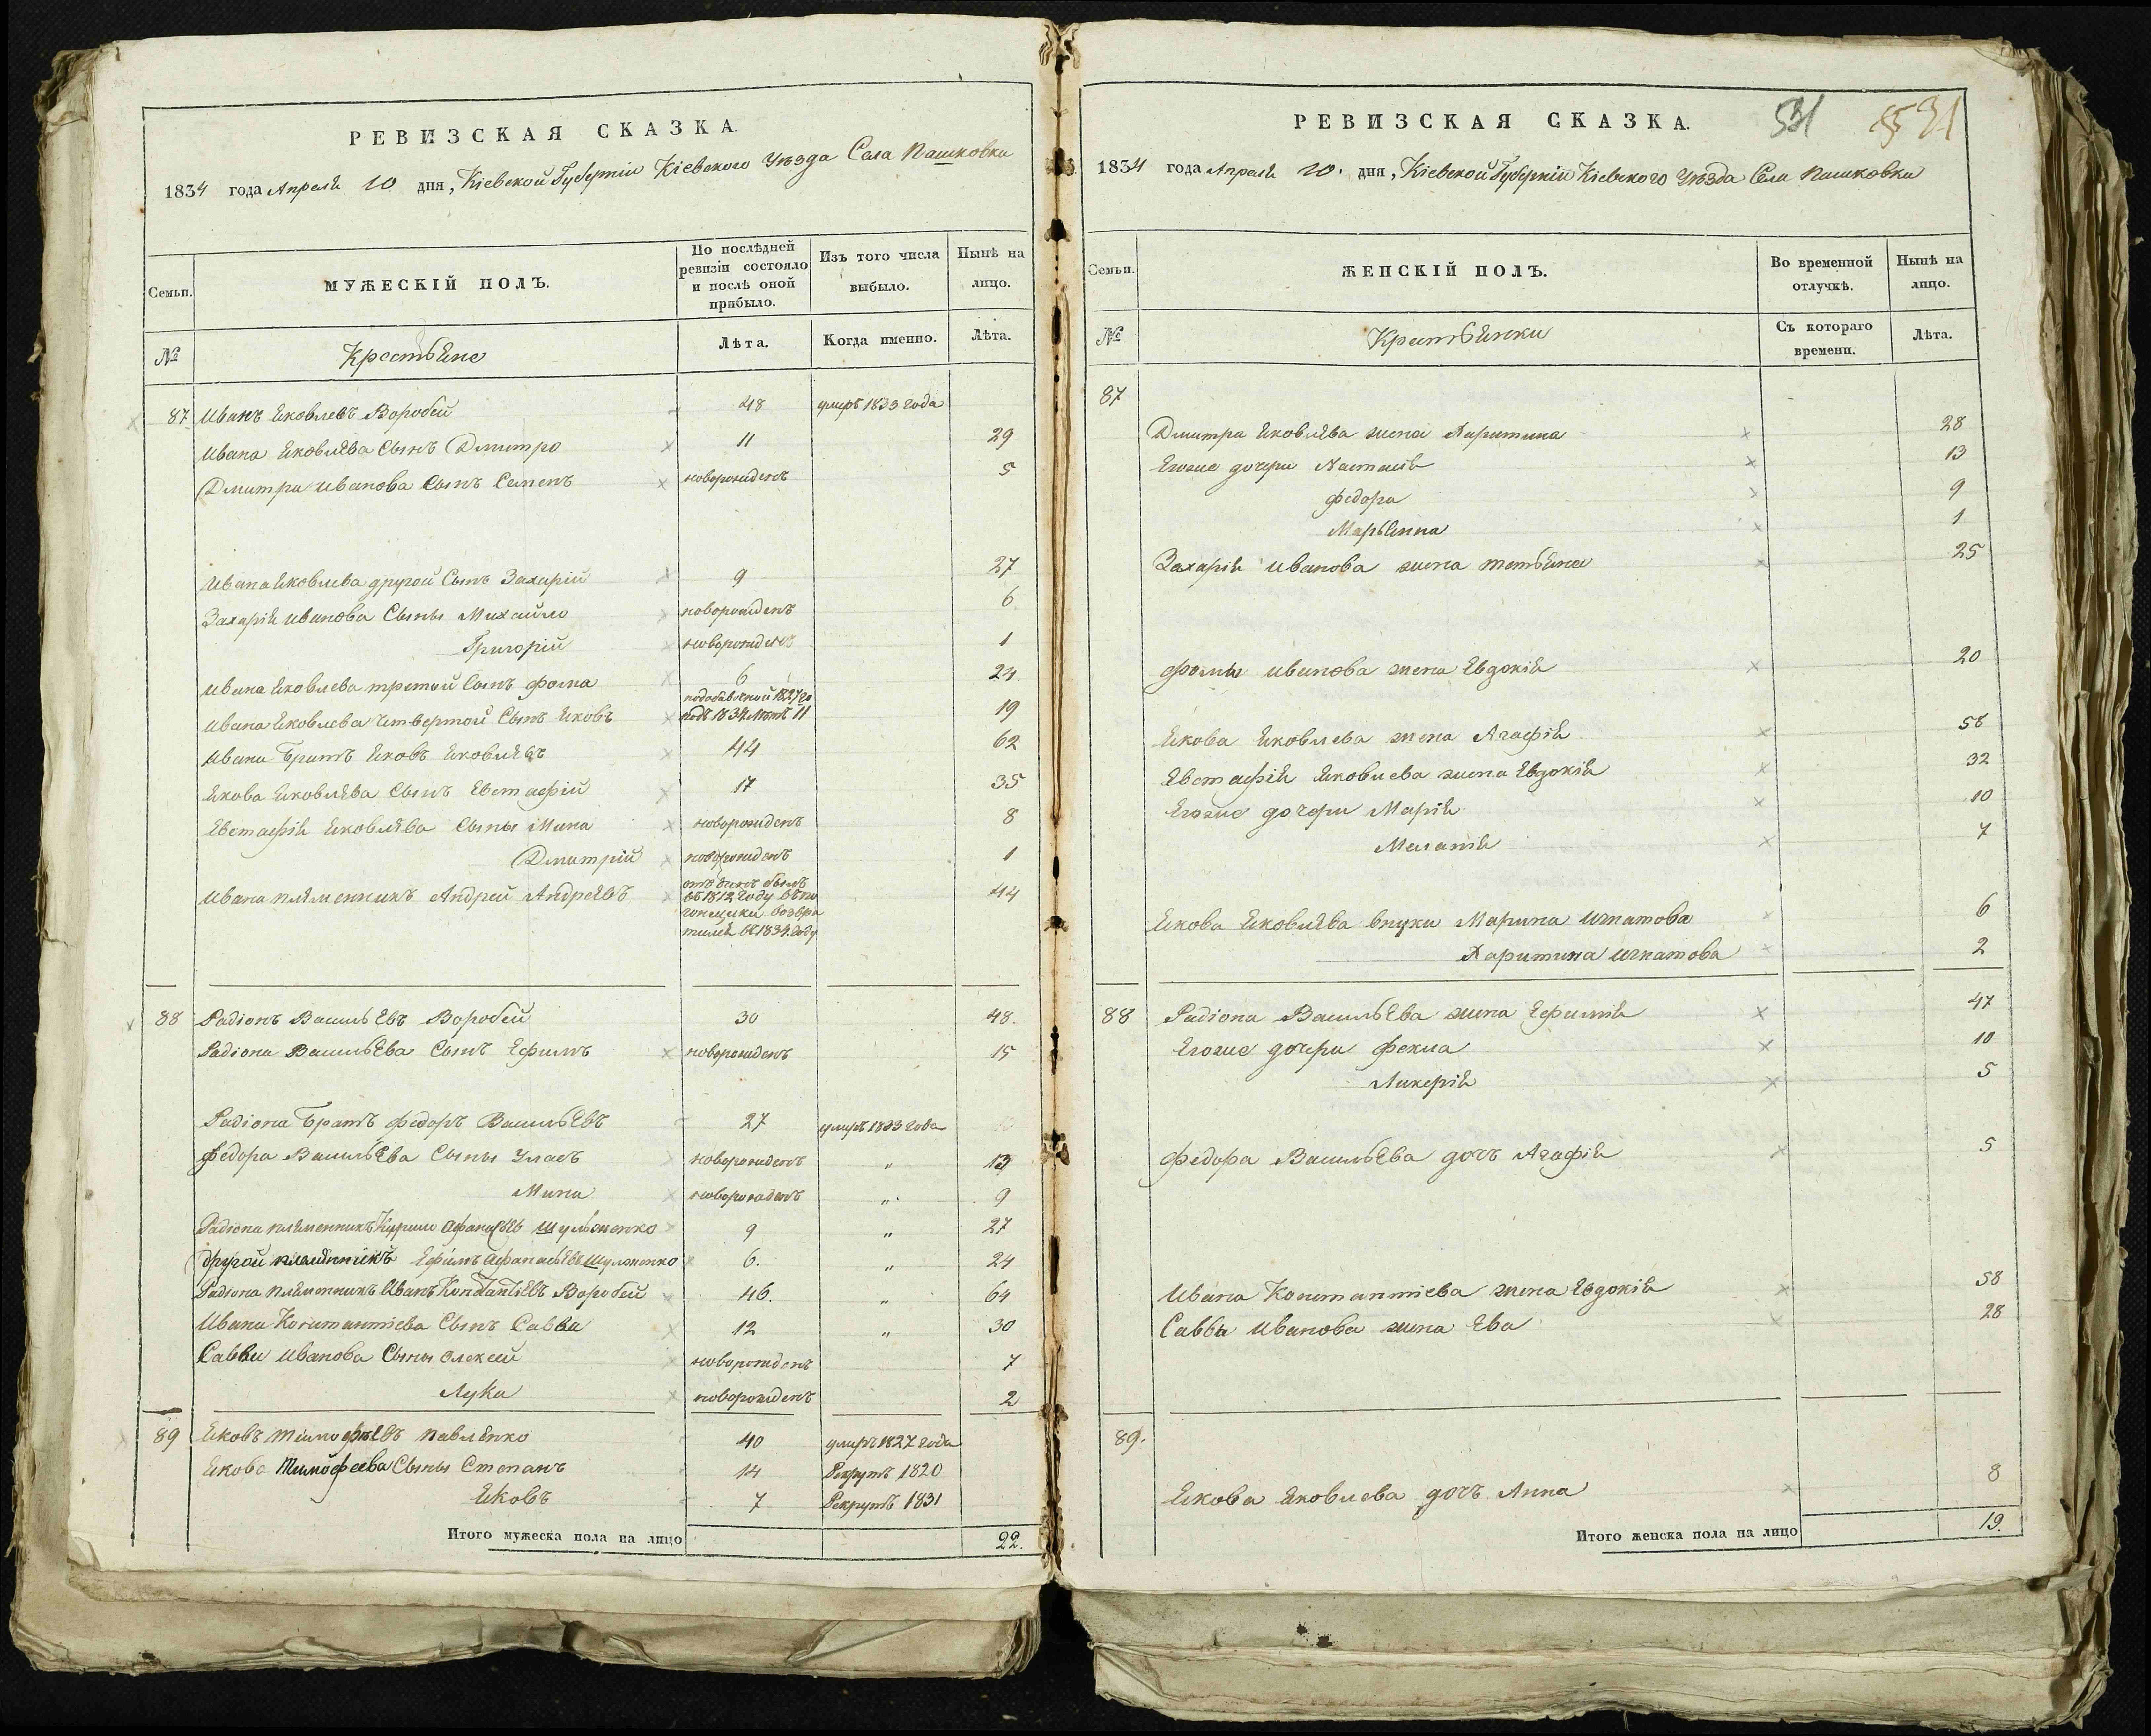 РЕВИЗСКАЯ СКАЗКА.
1834 года Апреля 10 дня, Кіевской Губерніи Кіевского Уѣзда Села Пашковки
Семьи.
МУЖЕСКІЙ ПОЛЪ.
По послѣдней ревизіи состояло и послѣ оной прибыло.
Изъ того числа выбыло.
Нынѣ на лицо.
№
Крестьяне
Лѣта.
Когда именно.
Лѣта.
87 Иванъ Яковлевъ Воробей 48 умеръ 1833 года
Ивана Яковлева Сынъ Дмитро 11 29
Дмитра Иванова Сынъ Семенъ новорожденъ 5
Ивана Яковлева другой Сынъ Захарій 9 27
Захарія Иванова Сыны Михайло новорожденъ 6
Григорій новорожденъ 1
Ивана Яковлева третой Сынъ Фома 6 24
Ивана Яковлева Четвертой Сынъ Яковъ 19
Ивана Братъ Яковъ Яковлевъ 44 62
Якова Яковлева Сынъ Евстафій 17 35
Евстафія Яковлева Сыны Мина новорожденъ 8
Дмитрій новорожденъ 1
Ивана племенникъ Андрей Андреевъ 44
въ 1812 году
въ 1834 году
88 Радіонъ Васильевъ Воробей 30 48.
Радіона Васильева Сынъ Ефимъ новорожденъ 15
Радіона Братъ Федоръ Васильевъ 27 умеръ 1833 года
Федора Васильева Сыны Уласъ новорожденъ „ 13
Мина новорожденъ „ 9
Радіона племенникъ Афанасьевъ Шульженко 9 „ 27
другой племянникъ Ефимъ Афанасьевъ Шулженко 6. „ 24
Радіона племенникъ Иванъ Константіевъ Воробей 46. „ 64
Ивана Константіева Сынъ Савва 12 „ 30
Саввы Иванова Сыны Олексей новорожденъ 7
Лука новорожденъ 2
89 Яковъ Тимофѣевъ Павленко 40 умеръ 1827 года
Якова Тимофеева Сыны Степанъ 14 Рекрутъ 1820
Яковъ 7 Рекрутъ 1831
Итого мужеска пола на лицо 22.
РЕВИЗСКАЯ СКАЗКА.
531
1834 года Апреля 10. дня, Кіевской Губерніи Кіевского Уѣзда Села Пашковки
Семьи.
ЖЕНСКІЙ ПОЛЪ.
Во временной отлучкѣ.
Нынѣ на лицо.
№
Крестьянки
Съ котораго времени.
Лѣта.
87
Дмитра Яковлева жена Харитина 28
Егоже дочери Настасія 13
Федора 9
Марьянна 1
Захарія Иванова жена Тетьяна 25
Фомы Иванова жена Евдокія 20
Якова Яковлева жена Агафія 58
Евстафія Яковлева жена Евдокія 32
Егоже дочери Марія 10
Меланія 7
Якова Яковлева внуки Марина Игнатова 6
Харитина Игнатова 2
88 Радіона Васильева жена Ефимія 47
Егоже дочери Фекла 10
Ликерія 5
Федора Васильева дочъ Агафія 5
Ивана Константіева жена Евдокія 58
Саввы Иванова жена Ева 28
89.
Якова Яковлева дочъ Анна 8
Итого женска пола на лицо 19.